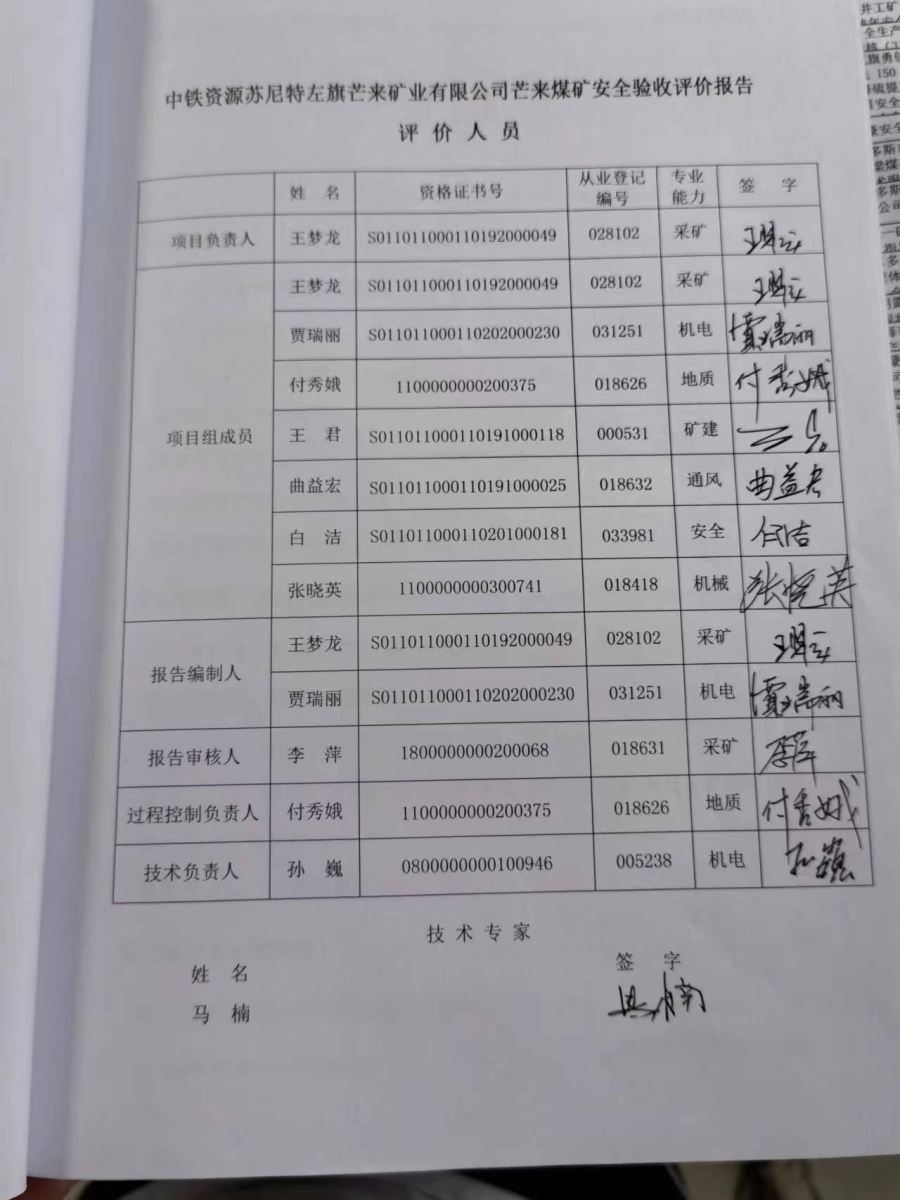 中铁资源苏尼特左旗芒来矿业有限公司芒来煤矿安全验收评价报告
评 价 人 员
姓 名 资格证书号 从业登记编号 专业能力 签 字
项目负责人 王梦龙 S011011000110192000049 028102 采矿
项目组成员 王梦龙 S011011000110192000049 028102 采矿
贾瑞丽 S011011000110202000230 031251 机电 贾瑞丽
付秀娥 1100000000200375 018626 地质 付秀娥
王 君 S011011000110191000118 000531 矿建
曲益宏 S011011000110191000025 018632 通风 曲益宏
白 洁 S011011000110201000181 033981 安全
张晓英 1100000000300741 018418 机械 张晓英
报告编制人 王梦龙 S011011000110192000049 028102 采矿
贾瑞丽 S011011000110202000230 031251 机电 贾瑞丽
报告审核人 李 萍 1800000000200068 018631 采矿 李萍
过程控制负责人 付秀娥 1100000000200375 018626 地质 付秀娥
技术负责人 孙 巍 0800000000100946 005238 机电 孙巍
技 术 专 家
姓 名 签 字
马 楠 马楠